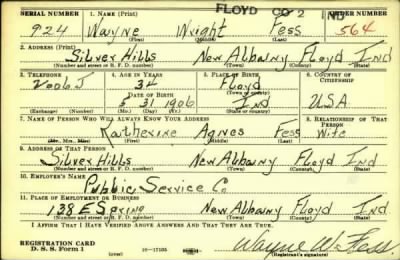 FLOYD CO 2 IND
SERIAL NUMBER 1. NAME (Print) ORDER NUMBER
924 Wayne Wright Fess 564
(First) (Middle) (Last)
2. ADDRESS (Print)
Silver Hills New Albany Floyd Ind
(Number and street or R. F. D. number) (Town) (County) (State)
3. TELEPHONE 4. AGE IN YEARS 5. PLACE OF BIRTH 6. COUNTRY OF CITIZENSHIP
34 Floyd
(Town or county)
DATE OF BIRTH
5 31 1906 Ind USA
(Exchange) (Number) (Mo.) (Day) (Yr.) (State or country)
7. NAME OF PERSON WHO WILL ALWAYS KNOW YOUR ADDRESS 8. RELATIONSHIP OF THAT PERSON
Katherine Agnes Fess Wife
(Mr., Mrs., Miss) (First) (Middle) (Last)
9. ADDRESS OF THAT PERSON
Silver Hills New Albany Floyd Ind
(Number and street or R. F. D. number) (Town) (County) (State)
10. EMPLOYER'S NAME
Public Service Co
11. PLACE OF EMPLOYMENT OR BUSINESS
138 E Spring New Albany Floyd Ind
(Number and street or R. F. D. number) (Town) (County) (State)
I AFFIRM THAT I HAVE VERIFIED ABOVE ANSWERS AND THAT THEY ARE TRUE.
REGISTRATION CARD
D. S. S. Form 1 16—17105 Wayne W. Fess
(Registrant's signature)